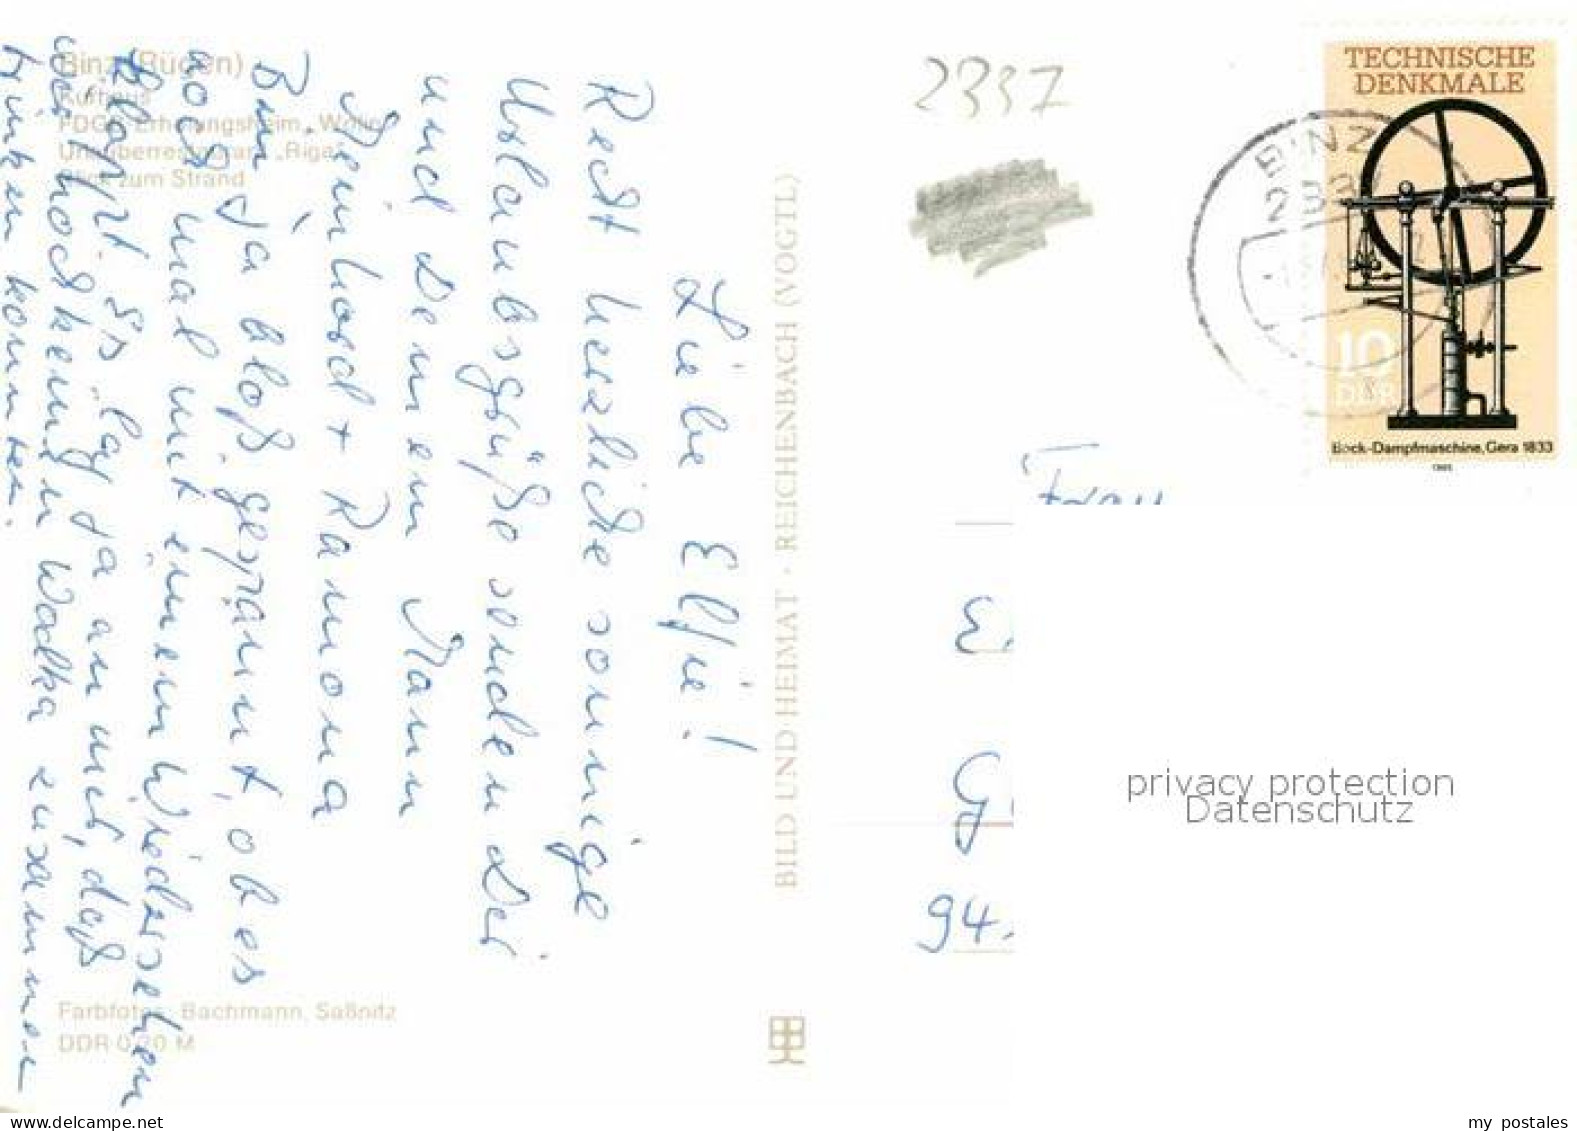 Binz (Rügen)
Kurhaus
FDGB-Erholungsheim „Wolin"
Urlauberrestaurant „Riga"
Blick zum Strand
Liebe Elfie!
Recht herzliche sonnige
Urlaubsgrüße senden Dir
und Deinem Mann
Reinhard + Ramona
Bin ja bloß gespannt, ob es
noch mal mit einem Wiedersehen
klappt. Es lag ja an mir, daß
wir noch keinen Wodka zusammen
trinken konnten.
Farbfotos: Bachmann, Saßnitz
DDR 0,20 M
BILD UND HEIMAT · REICHENBACH (VOGTL)
2337
TECHNISCHE
DENKMALE
10
DDR
Bock-Dampfmaschine, Gera 1833
1985
BINZ
Frau
94
privacy protection
Datenschutz
my postales